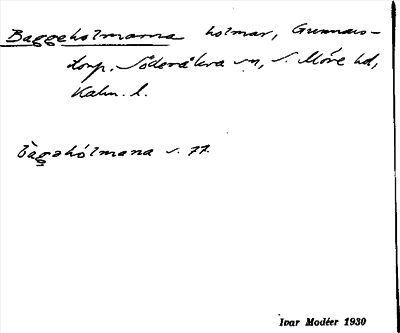 Baggeholmarna holmar, Gunnars-
torp, Söderåkra sn, S. Möre hd,
Kalm. l.
bàgəhólmana s. 77.
Ivar Modéer 1930